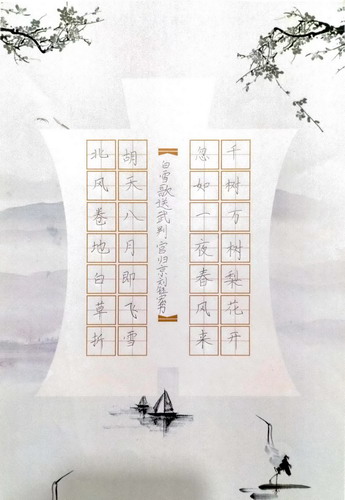 北风卷地白草折
胡天八月即飞雪
白雪歌送武判宫归京
忽如一夜春风来
千树万树梨花开